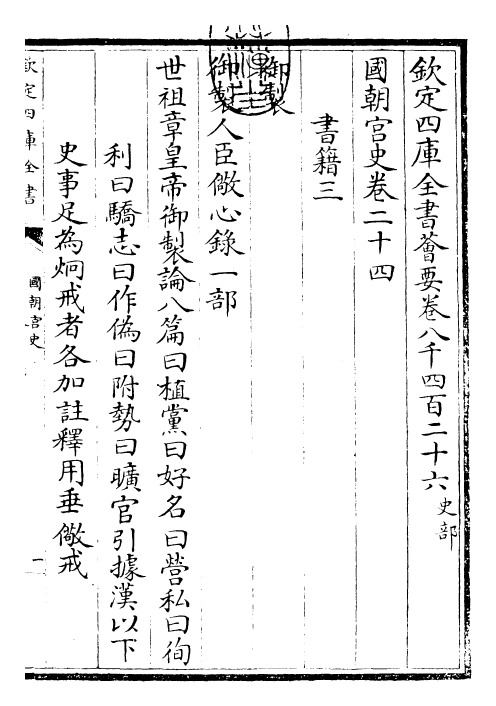 欽定四庫全書薈要卷八千四百二十六 史部
國朝宫史卷二十四
書籍三
御製
御製人臣儆心錄一部
世祖章皇帝御製論八篇曰植黨曰好名曰營私曰徇
利曰驕志曰作偽曰附勢曰曠官引據漢以下
史事足為炯戒者各加註釋用垂儆戒
欽定四庫全書
國朝宫史
一